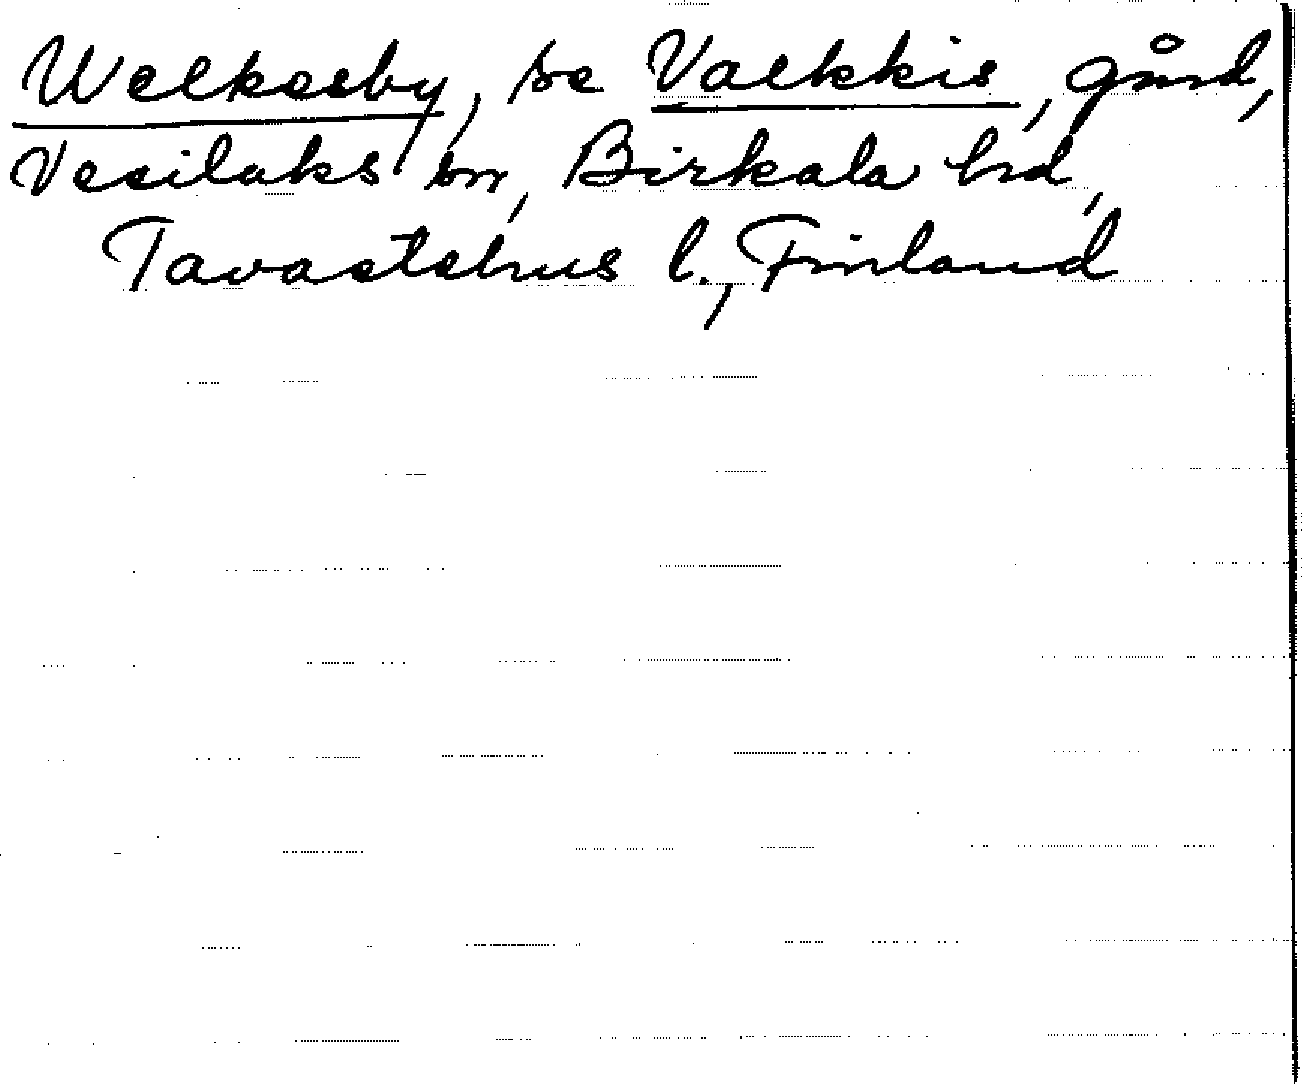 Welkesby, se Valkkis, gård,
Vesilaks sn, Birkala hd,
Tavastehus l., Finland